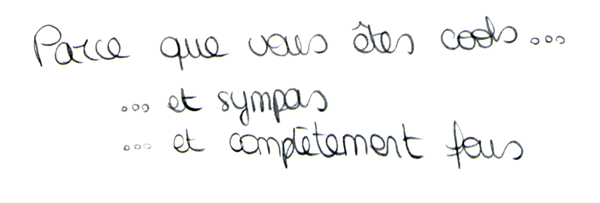 Parce que vous êtes cools...
... et sympas
... et complètement fous